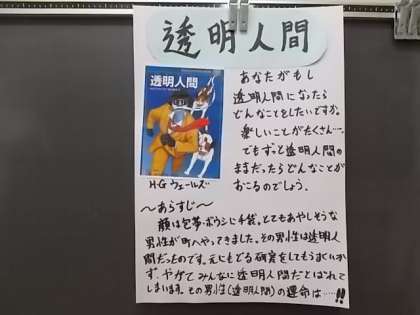 透明人間
透明人間
H·G ウェールズ
あなたがもし
透明人間になったら
どんなことをしたいですか。
楽しいことがたくさん…。
でもずっと透明人間の
ままだったらどんなことが
おこるのでしょう。
～あらすじ～
顔は包帯・ボウシに手袋。とてもあやしそうな
男性が町へやってきました。その男性は透明人
間だったのです。元にもどる研究をしてもうまくいか
ず、やがてみんなに透明人間だとばれて
しまいます。その男性(透明人間)の運命は……!!